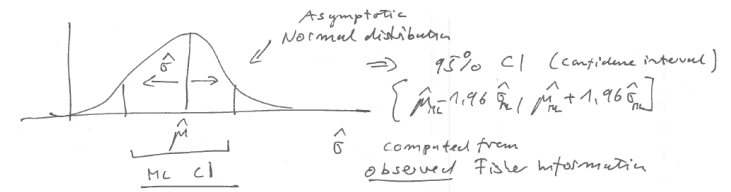 Asymptotic
Normal distribution
σ̂
⇒ 95% CI (Confidence interval)
[μ̂_ML - 1,96 σ̂_ML, μ̂_ML + 1,96 σ̂_ML]
μ̂
ML CI
σ̂ computed from
observed Fisher Information